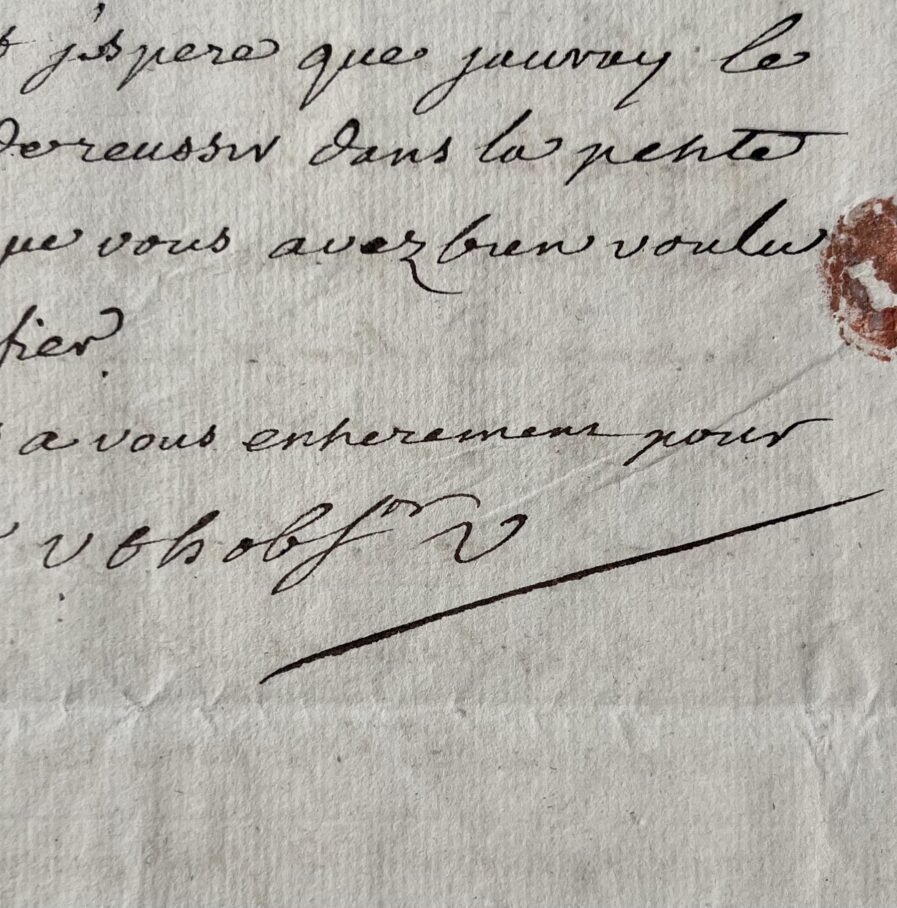 j'espere que jauray le
de reussir dans la petite
que vous avez bien voulu
fier
a vous entierement pour
v t h ob sr